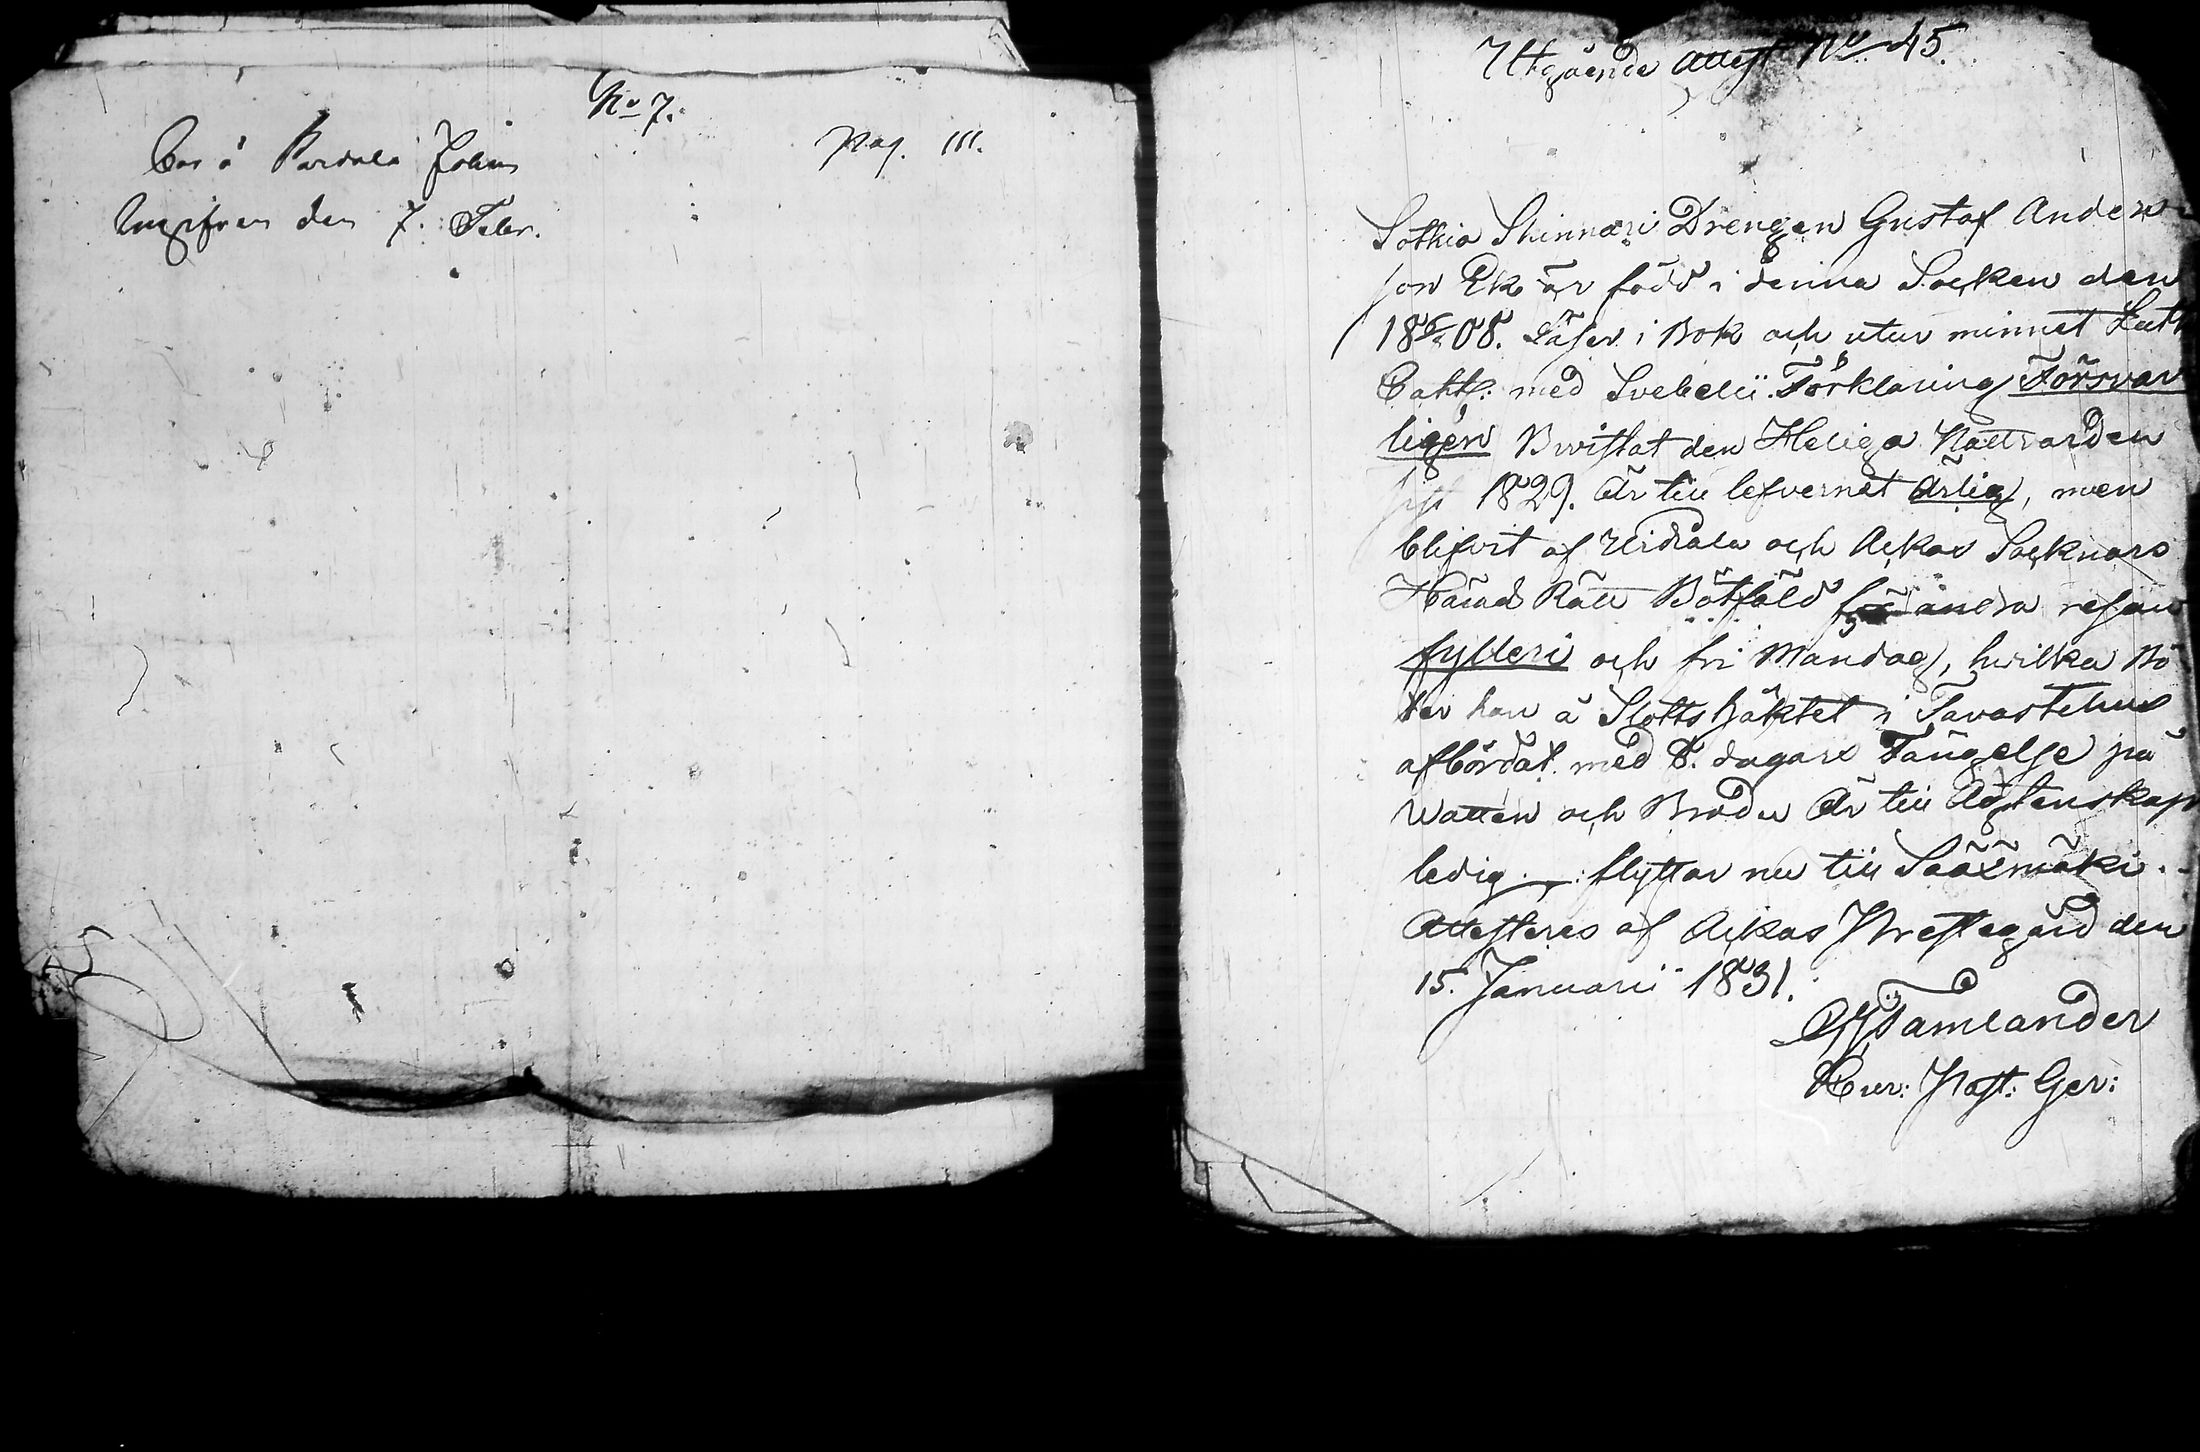 No 7.
Bor å Pardala Johan
pag. 111.
Angifven den 7. Febr.
Utgående Attest No. 45.
Sotkia Skinnari Drengen Gustaf Anders-
son Ek är född i denna Socken den
18 08. Läser i Bok och utur minnet Luth
Cat: med Svebelii Förklaring Försvar
ligen Bivistat den Heliga Nattvarden
sist 1829. Är till lefvernet Ärlig, men
blifvit af Urdiala och Ackas Socknars
Härad Rätt Bötfäld för andra resan
fylleri och fri Mandag, hvilka Bö
ter han å Slotts häktet i Tavastehus
afbördat med 8. dagars Fängelse på
Watten och Bröd Är till Ägtenskap
ledig. flyttar nu till Sääxmäki. -
Attesteras af Ackas Prestegård den
15. Januarii 1831.
Tamlander
Past: